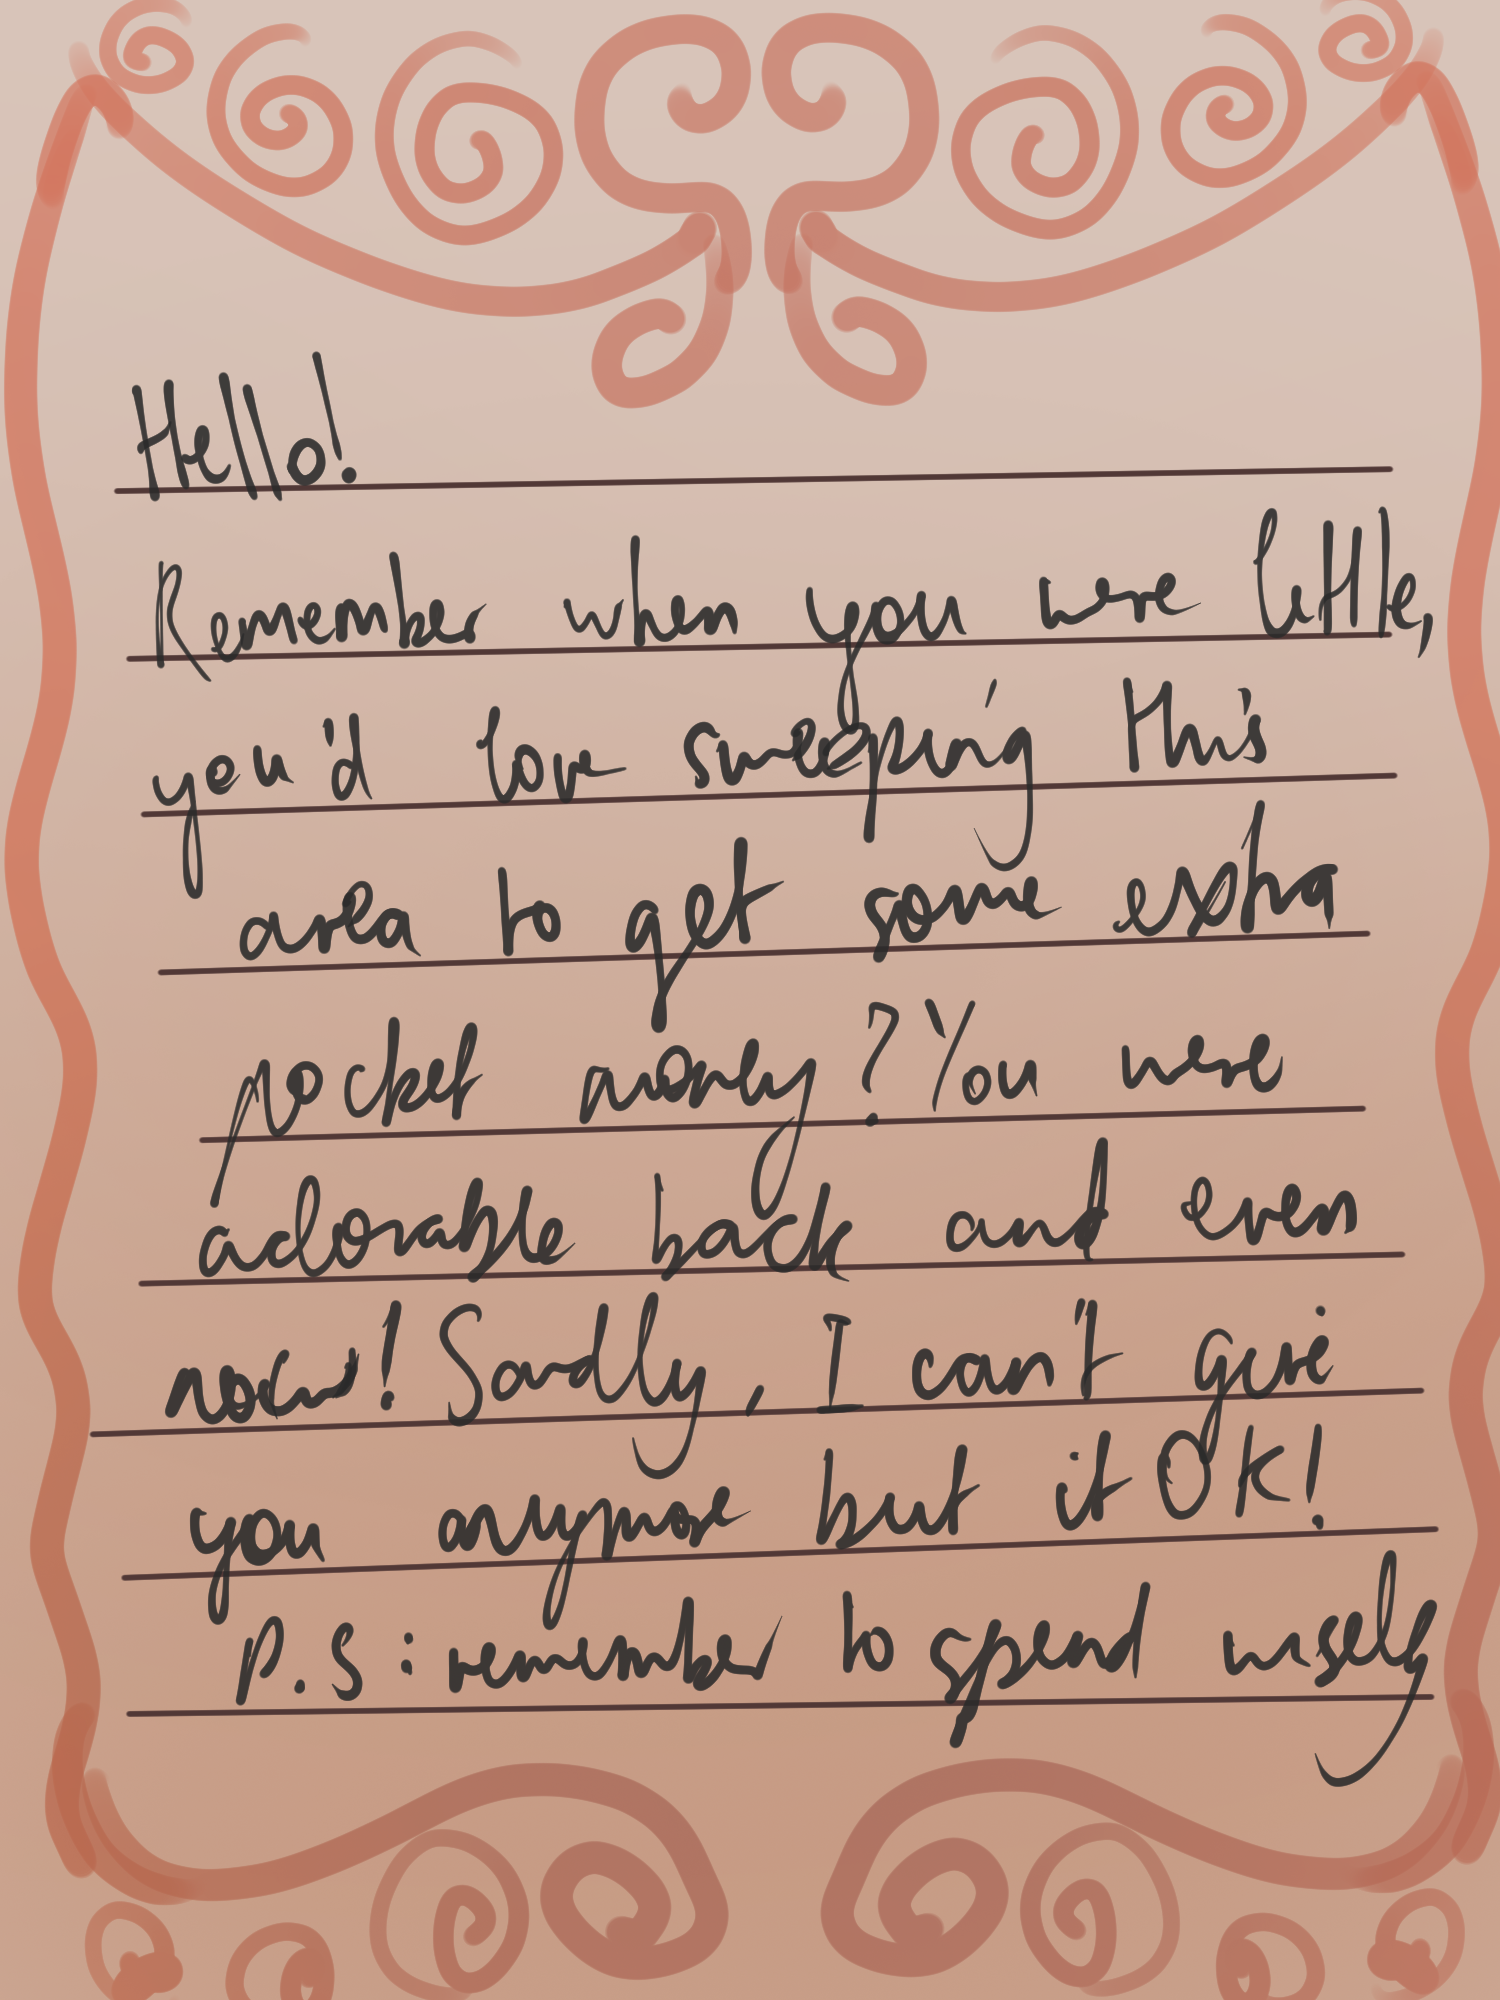 Hello!
Remember when you were little,
you'd love sweeping this
area to get some extra
pocket money? You were
adorable back and even
now! Sadly, I can't give
you anymore but it OK!
P.S: remember to spend wisely